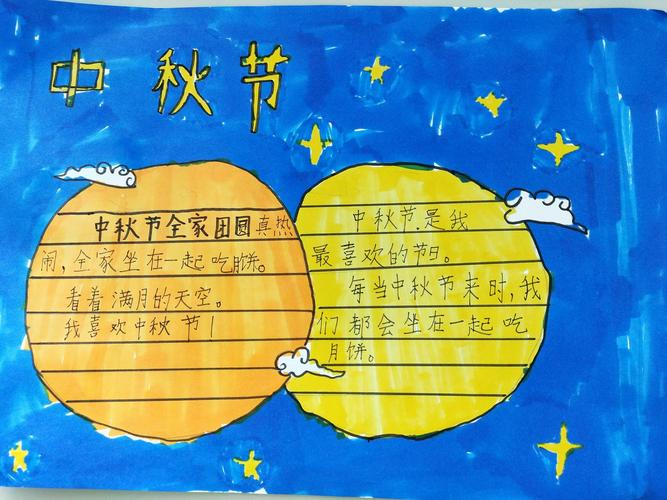 中秋节
中秋节全家团圆真热
闹，全家坐在一起吃月饼。
看着满月的天空。
我喜欢中秋节！
中秋节.是我
最喜欢的节日。
每当中秋节来时，我
们都会坐在一起吃
月饼。